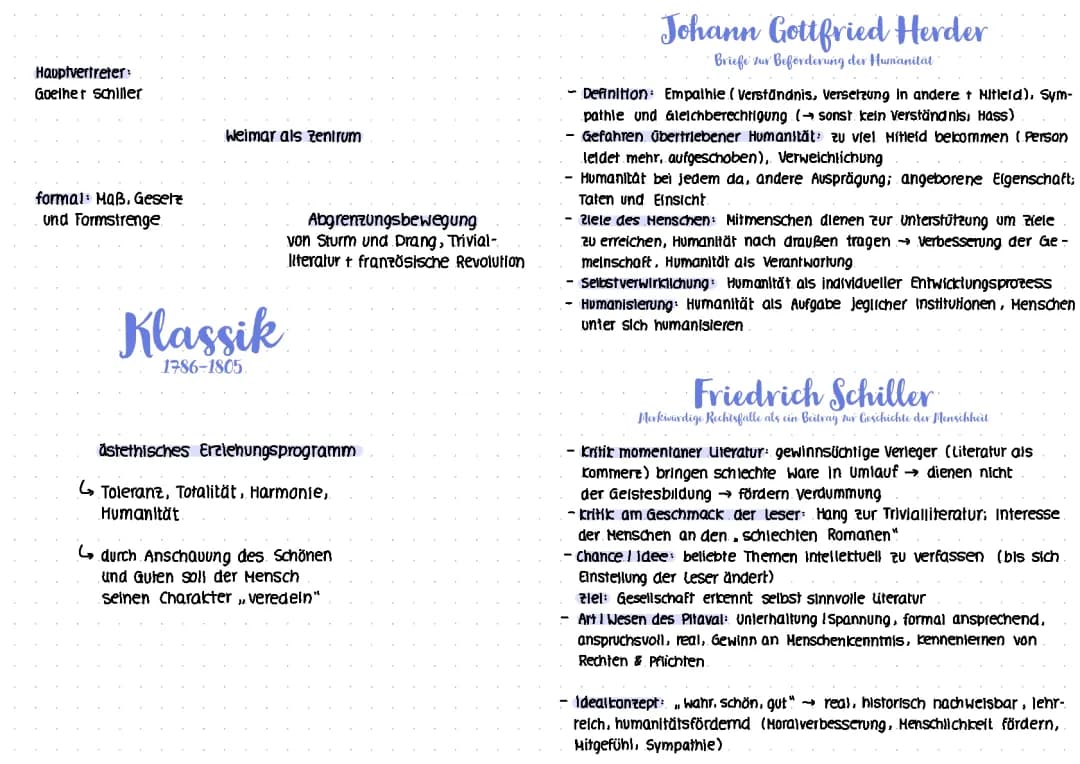 Hauptvertreter:
Goethe + Schiller
Weimar als Zentrum
formal: Maß, Gesetz
und Formstrenge
Abgrenzungsbewegung
von Sturm und Drang, Trivial-
literatur + französische Revolution
Klassik
1786-1805
ästethisches Erziehungsprogramm
↳ Toleranz, Totalität, Harmonie,
Humanität
↳ durch Anschauung des Schönen
und Guten soll der Mensch
seinen Charakter „veredeln"
Johann Gottfried Herder
Briefe zur Beförderung der Humanität
- Definition: Empathie (Verständnis, Versetzung in andere + Mitleid), Sym-
pathie und Gleichberechtigung (→ sonst kein Verständnis; Hass)
- Gefahren übertriebener Humanität: zu viel Mitleid bekommen (Person
leidet mehr, aufgeschoben), Verweichlichung
- Humanität bei jedem da, andere Ausprägung; angeborene Eigenschaft;
Taten und Einsicht
- Ziele des Menschen: Mitmenschen dienen zur Unterstützung um Ziele
zu erreichen, Humanität nach draußen tragen → Verbesserung der Ge-
meinschaft, Humanität als Verantwortung
- Selbstverwirklichung: Humanität als individueller Entwicklungsprozess
- Humanisierung: Humanität als Aufgabe jeglicher Institutionen, Menschen
unter sich humanisieren
Friedrich Schiller
Merkwürdige Rechtsfälle als ein Beitrag zur Geschichte der Menschheit
- Kritik momentaner Literatur: gewinnsüchtige Verleger (Literatur als
Kommerz) bringen schlechte Ware in Umlauf → dienen nicht
der Geistesbildung → fördern Verdummung
- Kritik am Geschmack der Leser: Hang zur Trivialliteratur; Interesse
der Menschen an den „schlechten Romanen"
- Chance / Idee: beliebte Themen intellektuell zu verfassen (bis sich
Einstellung der Leser ändert)
Ziel: Gesellschaft erkennt selbst sinnvolle Literatur
- Art / Wesen des Pitaval: Unterhaltung / Spannung, formal ansprechend,
anspruchsvoll, real, Gewinn an Menschenkenntnis, kennenlernen von
Rechten & Pflichten
- Idealkonzept: „wahr, schön, gut" → real, historisch nachweisbar, lehr-
reich, humanitätsfördernd (Moralverbesserung, Menschlichkeit fördern,
Mitgefühl, Sympathie)